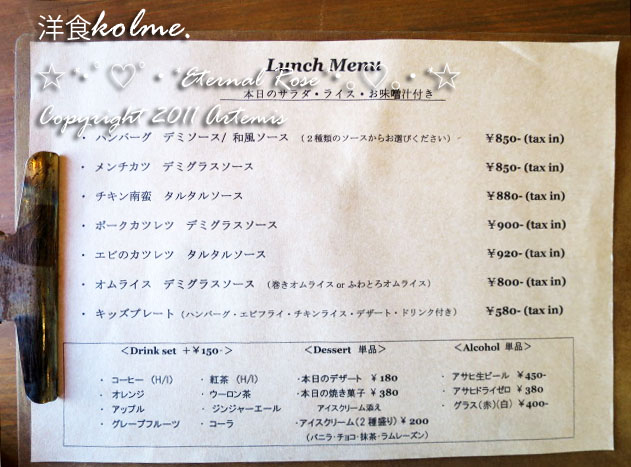 洋食kolme.
Lunch Menu
☆*･ﾟ♡ﾟ･*Eternal Rose*･｡♡｡･*☆
本日のサラダ・ライス・お味噌汁付き
Copyright 2011 Artemis
・ハンバーグ デミソース/ 和風ソース (2種類のソースからお選びください) ¥850-(tax in)
・メンチカツ デミグラスソース ¥850-(tax in)
・チキン南蛮 タルタルソース ¥880-(tax in)
・ポークカツレツ デミグラスソース ¥900-(tax in)
・エビのカツレツ タルタルソース ¥920-(tax in)
・オムライス デミグラスソース (巻きオムライス or ふわとろオムライス) ¥800-(tax in)
・キッズプレート(ハンバーグ・エビフライ・チキンライス・デザート・ドリンク付き) ¥580-(tax in)
<Drink set +¥150-> <Dessert 単品> <Alcohol 単品>
・コーヒー (H/I) ・紅茶 (H/I) ・本日のデザート ¥180 ・アサヒ生ビール ¥450-
・オレンジ ・ウーロン茶 ・本日の焼き菓子 ¥380 ・アサヒドライゼロ ¥380
・アップル ・ジンジャーエール アイスクリーム添え ・グラス(赤)(白) ¥400-
・グレープフルーツ ・コーラ ・アイスクリーム(2種盛り) ¥200
(バニラ・チョコ・抹茶・ラムレーズン)